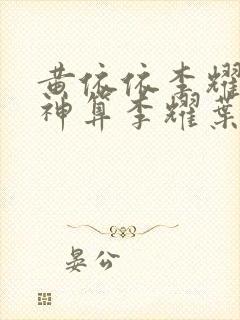 黄依依李耀
神算李耀葉
晏公